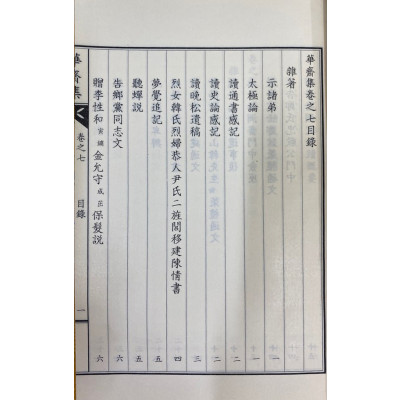 華齋集卷之七目錄
雜著
示諸弟 一
太極論 一
讀通書感記 二
讀史論感記 二
讀晩松遺稿 三
烈女韓氏烈婦恭人尹氏二旌閭移建陳情書 四
夢覺追記 五
聽蟬説 五
告鄉黨同志文 六
贈李性和寅繡金允守成茁保髮説 六
華齋集 卷之七 目錄 一